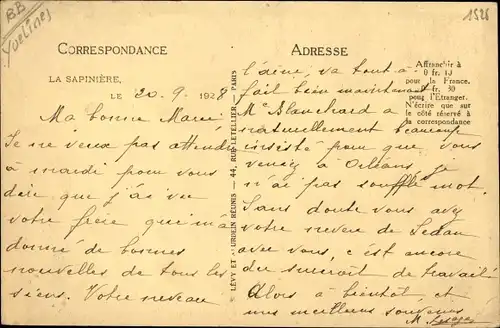 BB
Yvelines
1526
CORRESPONDANCE
ADRESSE
LA SAPINIÈRE,
LE 20.9.1928
Affranchir à
0 fr. 10
pour la France.
fr. 30
pour l'Étranger.
N'écrire que sur
le côté réservé à
la correspondance
LÉVY ET NEURDEIN RÉUNIS — 44, RUE LETELLIER — PARIS
Ma bonne
Je ne veux pas attendre
à mardi pour vous
dire que j'ai vu
votre frère qui m'a
donné de bonnes
nouvelles de tous les
siens. Votre neveu
l'aîné, va tout à
fait bien maintenant
Me Blanchard a
naturellement beaucoup
insisté pour que vous
veniez à Orléans, je
n'ai pas soufflé mot.
Sans doute vous avez
votre neveu de Sedan
avec vous, c'est encore
du surcroit de travail
Alors à bientôt, et
mes meilleurs souvenirs
M.